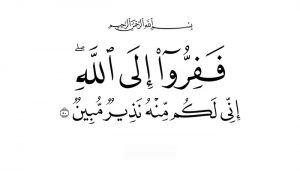 بِسْمِ اللَّهِ الرَّحْمَٰنِ الرَّحِيمِ
فَفِرُّوٓا۟ إِلَى ٱللَّهِ ۖ
إِنِّى لَكُم مِّنْهُ نَذِيرٌ مُّبِينٌ ٥٠